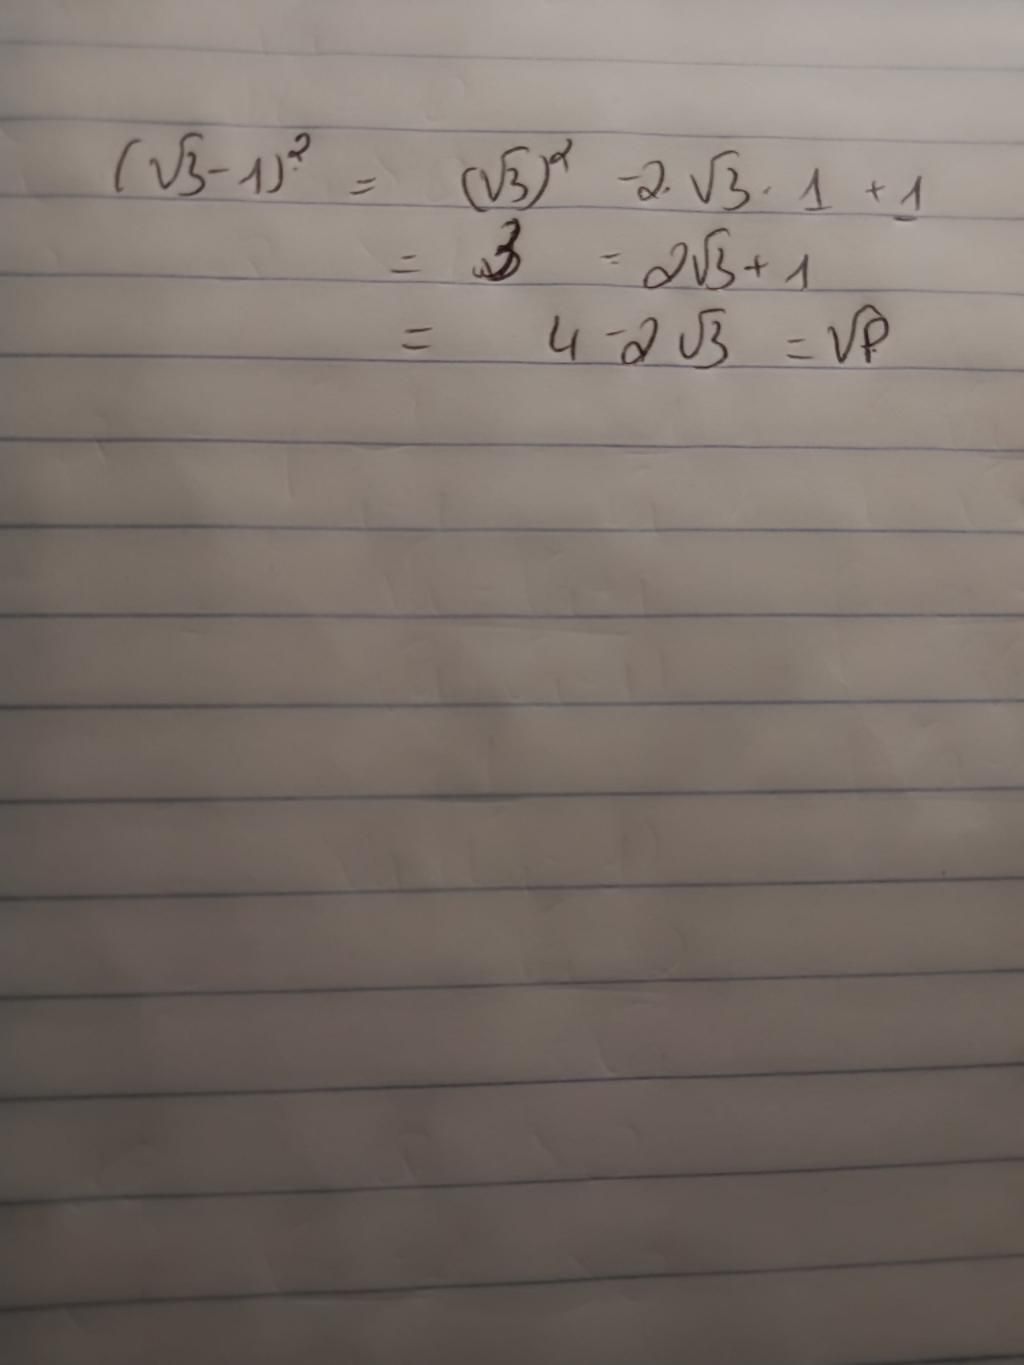 (√3-1)² = (√3)² -2.√3.1 +1
= 3 - 2√3+1
= 4 -2√3 = VP